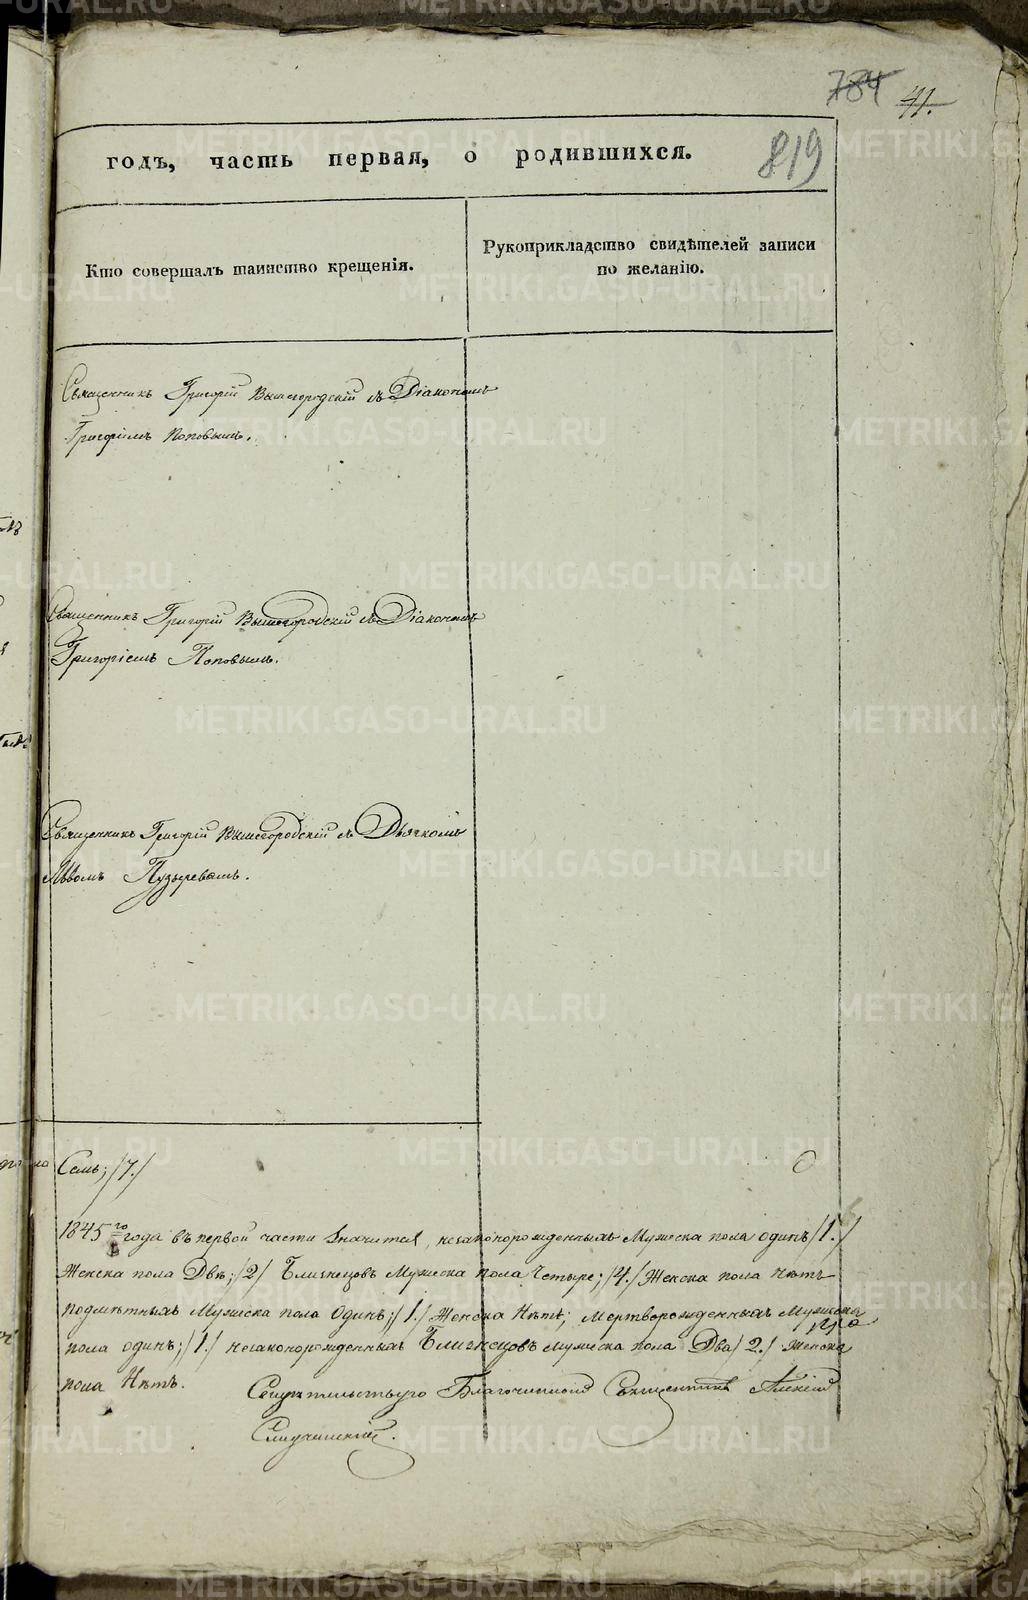 784 41.
годъ, часть первая, о родившихся. 819
Кто совершалъ таинство крещенія.
Рукоприкладство свидѣтелей записи
по желанію.
Священникъ Григорій Вышегородскій съ Діакономъ
Григоріемъ Поповымъ.
Священникъ Григорій Вышегородскій съ Діакономъ
Григоріемъ Поповымъ.
Священникъ Григорій Вышегородскій съ Дьячкомъ
Львомъ Пузыревымъ.
Семь; /7./
1845го года въ первой части значится, незаконорожденныхъ Мужеска пола одинъ /1./
Женска пола Двѣ; /2/ Близнецовъ Мужеска пола Четыре; /4./ Женска пола Нѣтъ
подметныхъ Мужеска пола Одинъ; /1./ Женска Нѣтъ; Мертворожденныхъ Мужеска
пола одинъ; /1./ незаконорожденныхъ Близнецовъ мужеска пола Два /2./ Женска
пола Нѣтъ. Свидѣтельствую Благочинной Священникъ Алексій
METRIKI.GASO-URAL.RU